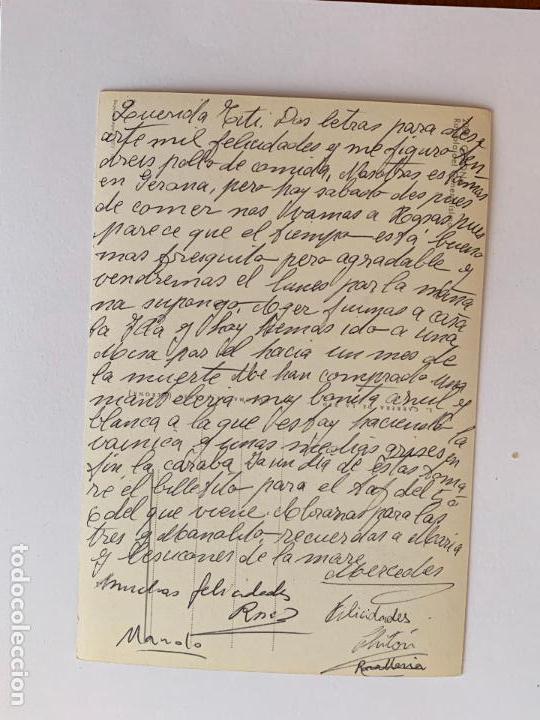 Querida Titi. Dos letras para dese
arte mil felicidades y me figuro ten
dreis pollo de comida. Nosotras estamos
en Gerona, pero hoy sabado despues
de comer nos vamos a Rosas pues
parece que el tiempo está bueno
mas fresquito pero agradable y
vendremos el lunes por la maña
na supongo. Ayer fuimos a
la y hoy hemos ido a una
Misa por él hacia un mes de
la muerte Me han comprado una
manteleria muy bonita azul y
blanca a la que estoy haciendo la
vainica y unas medias grises en
fin la caraba. Ya un dia de estos toma
ré el billetito para el Taf del 5 ó
6 del que viene. Abrazos para las
tres y Manolito recuerdos a Maria
y de la mare
Mercedes
Muchas felicidades
Rosa
Felicidades
Manolo
Rosa Maria
todocoleccion